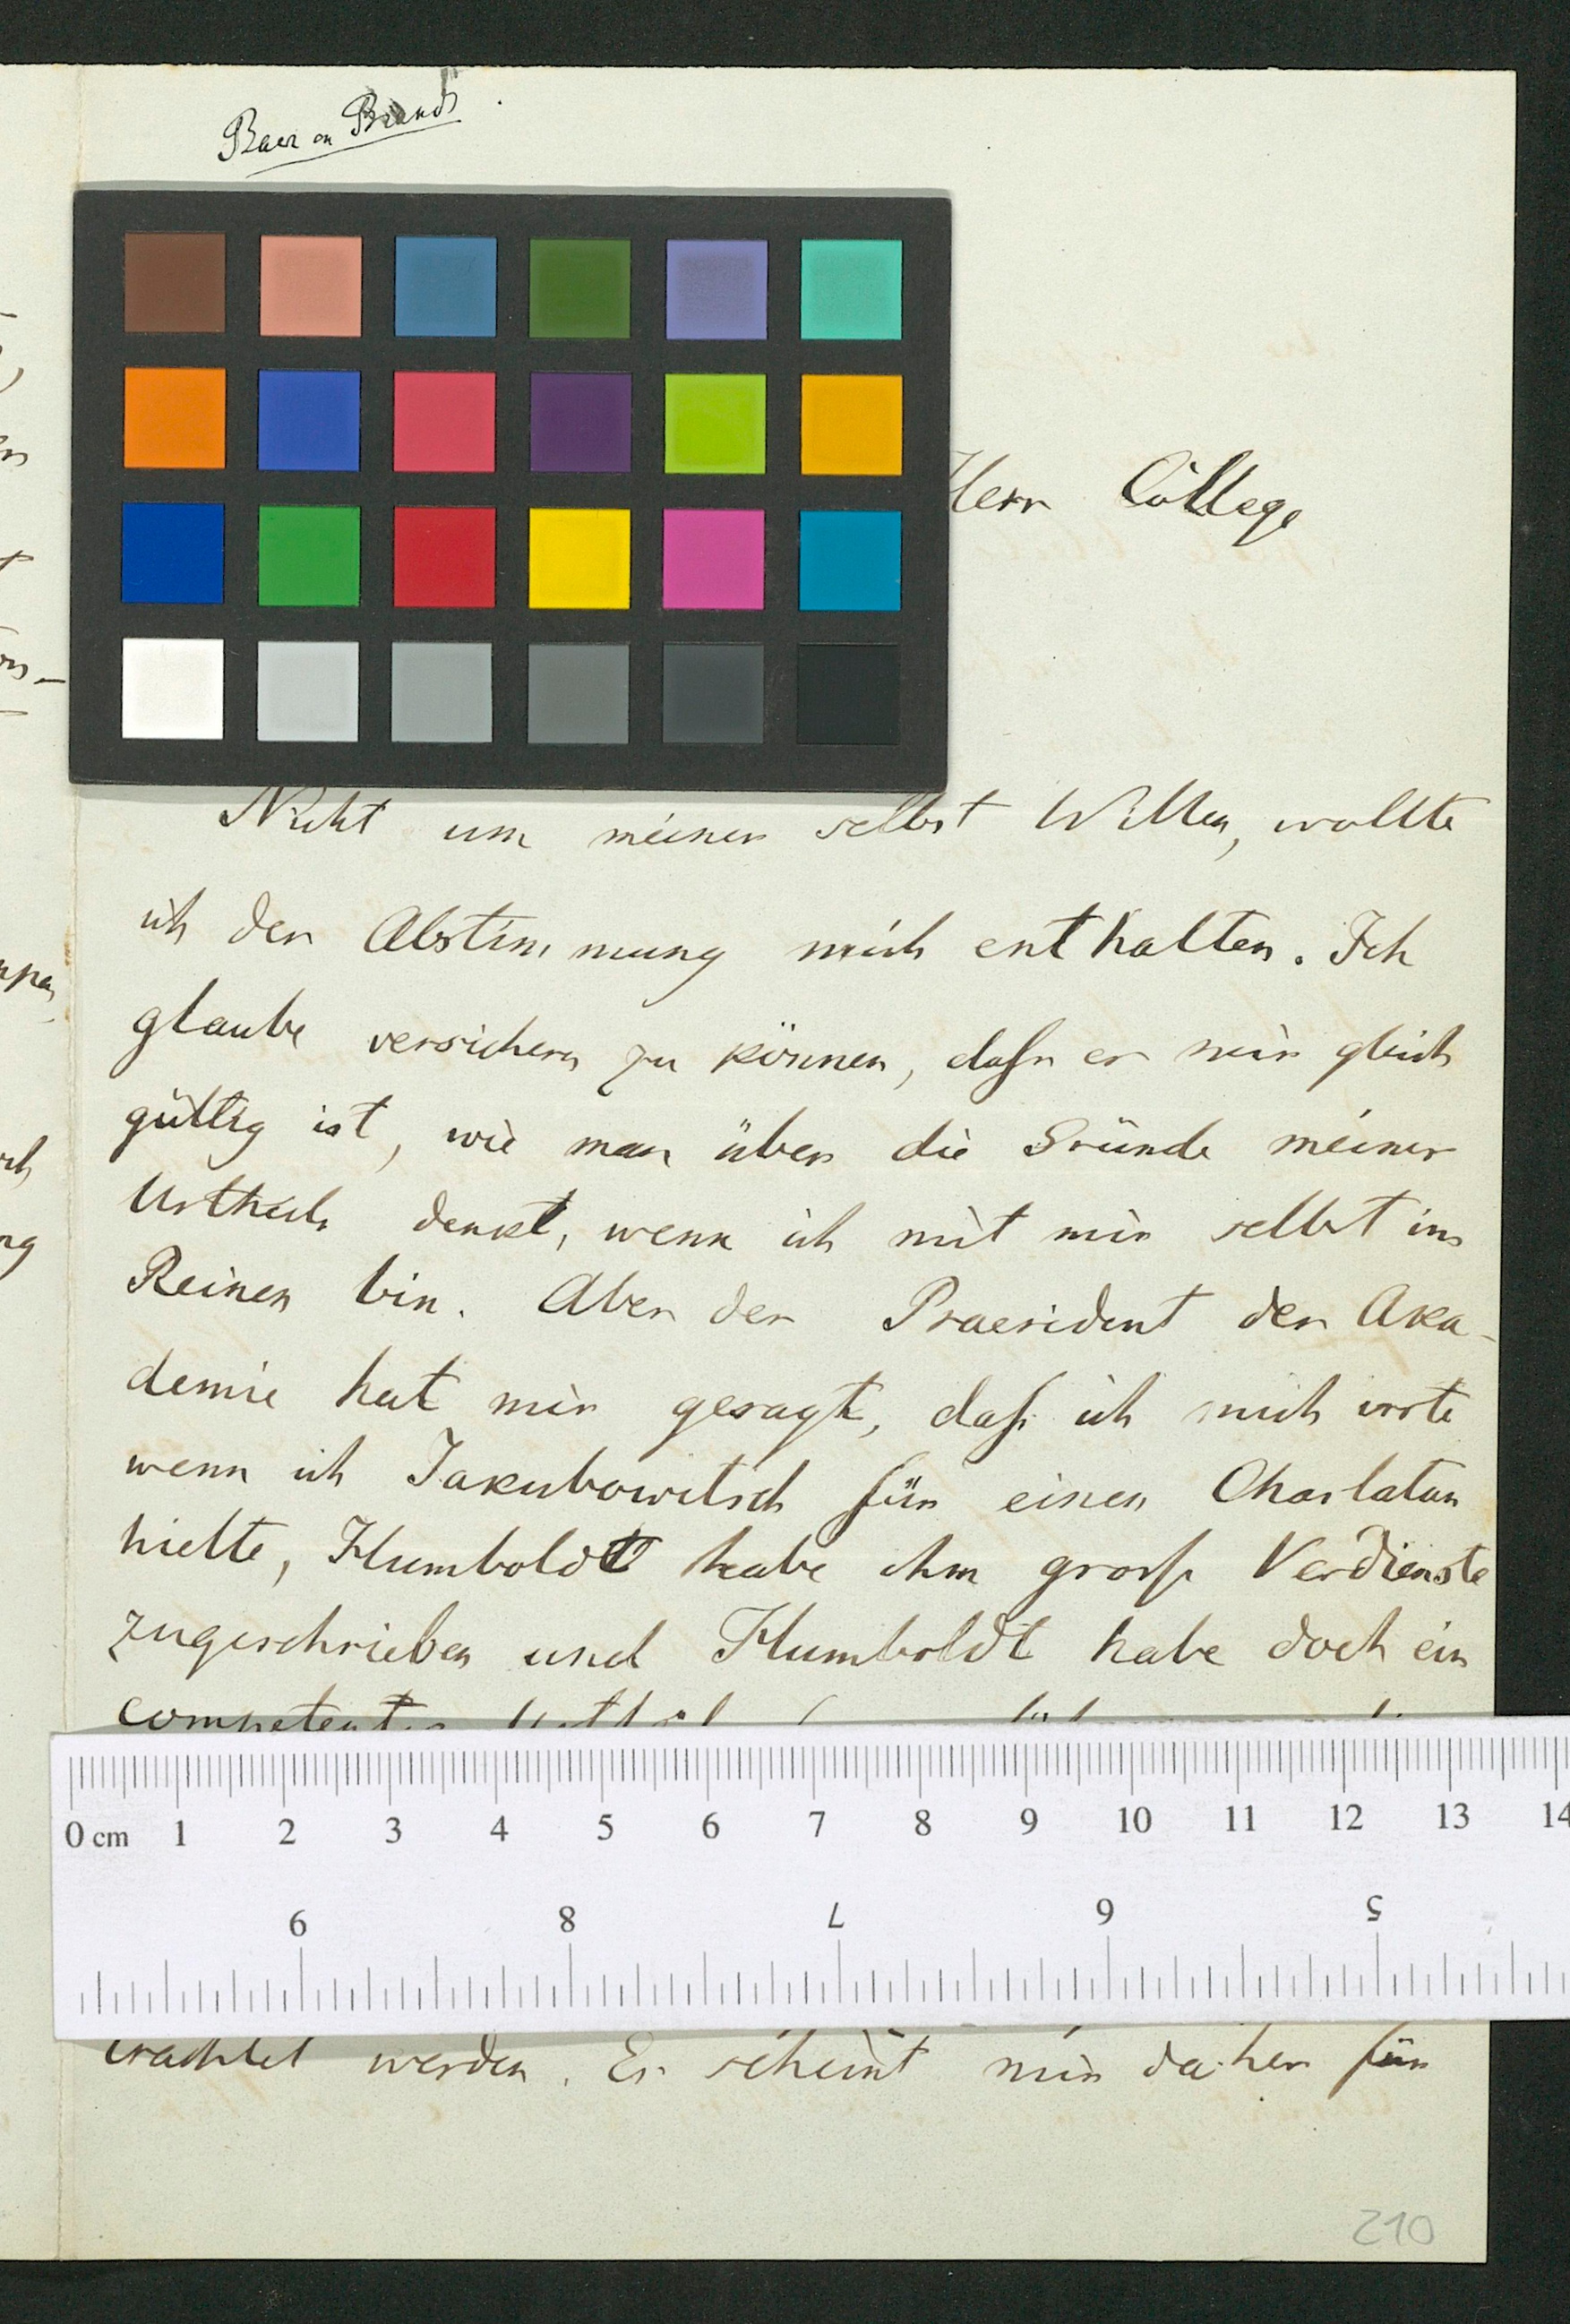 Baer an Brandt.
Herr College
Nicht um meiner selbst Willen, wollte
ich der Abstimmung mich enthalten. Ich
glaube versichern zu können, dass es mir gleich
gültig ist, wie man über die Gründe meines
Urtheils denkt, wenn ich mit mir selbst im
Reinen bin. Aber der Praesident der Aka-
demie hat mir gesagt, dass ich mich irrte
wenn ich Jakubowitsch für einen Charlatan
hielte, Humboldt habe ihm grosse Verdienste
zugeschrieben und Humboldt habe doch ein
competentes Urtheil
0 cm 1 2 3 4 5 6 7 8 9 10 11 12 13 14
9 8 7 6 5
werden. Es scheint mir daher für
210